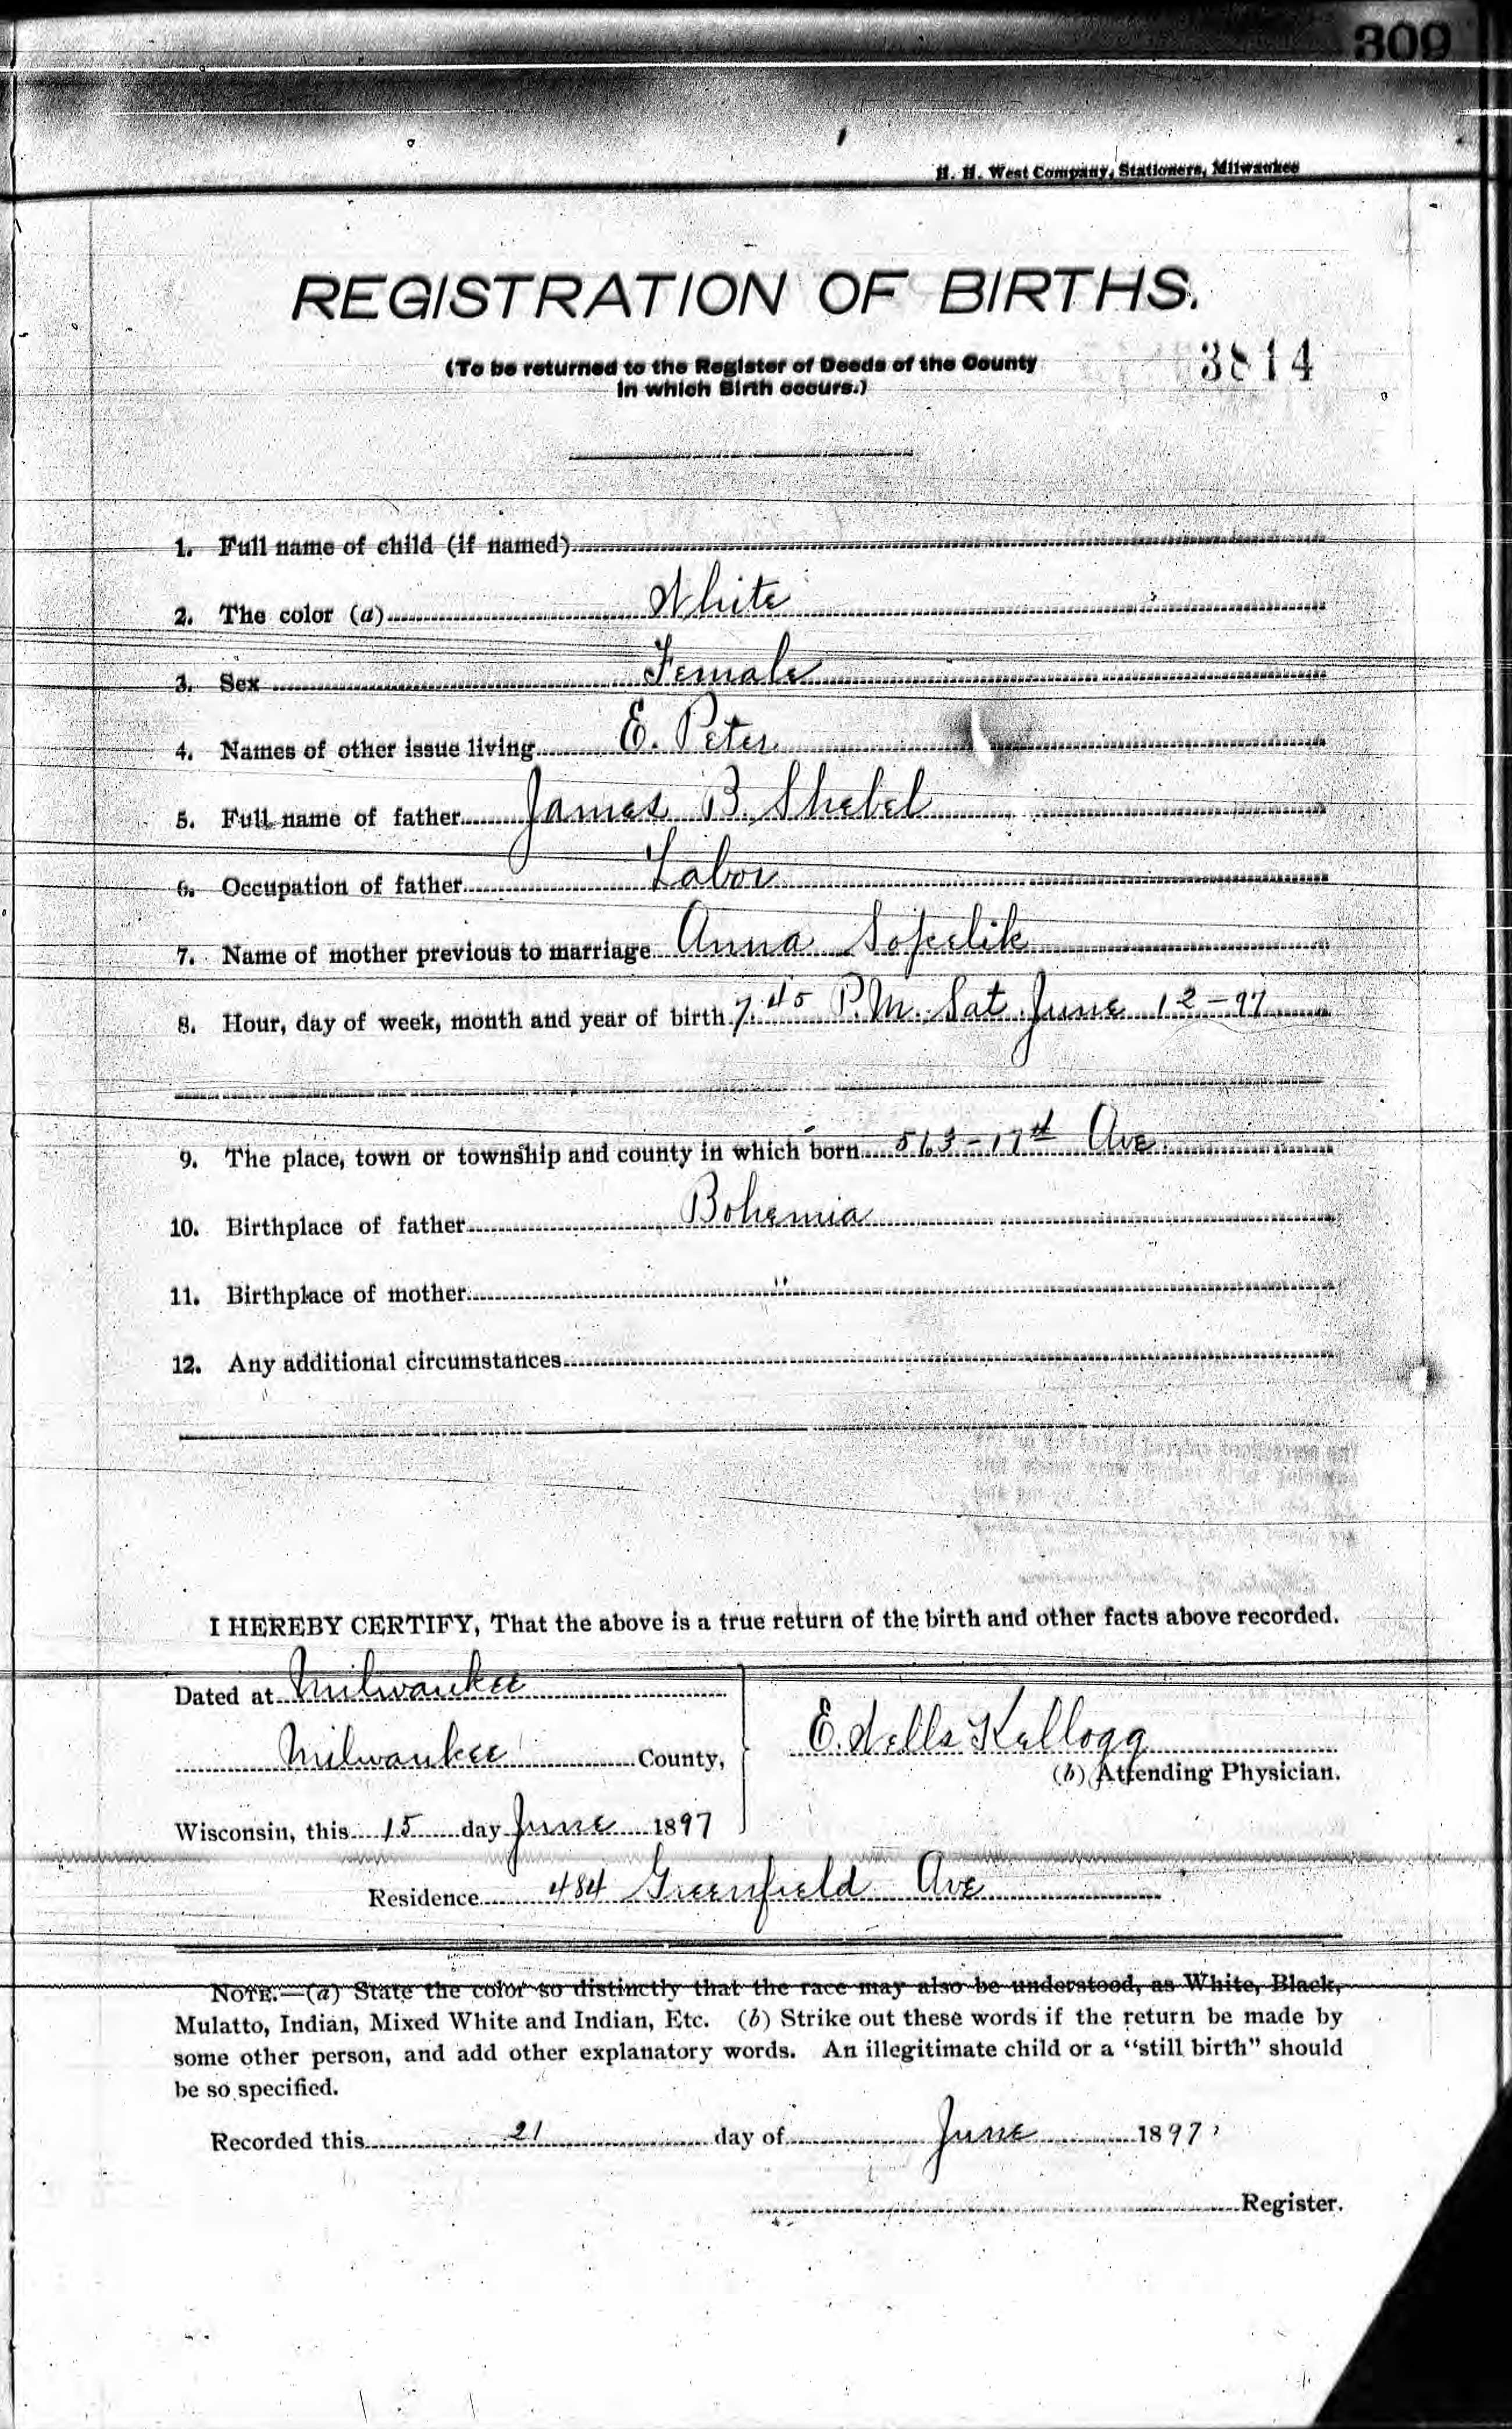 309
H. H. West Company, Stationers, Milwaukee
REGISTRATION OF BIRTHS.
(To be returned to the Register of Deeds of the County
in which Birth occurs.)
3814
1. Full name of child (if named)
2. The color (a) White
3. Sex Female
4. Names of other issue living E. Peter
5. Full name of father James B. Shebel
6. Occupation of father Labor
7. Name of mother previous to marriage Anna
8. Hour, day of week, month and year of birth 7.45 P.M. Sat June 12-97
9. The place, town or township and county in which born 563-17th Ave
10. Birthplace of father Bohemia
11. Birthplace of mother "
12. Any additional circumstances
I HEREBY CERTIFY, That the above is a true return of the birth and other facts above recorded.
Dated at Milwaukee
Milwaukee County,
E. Wells Kellogg
(b) Attending Physician.
Wisconsin, this 15 day June 1897
Residence 484 Greenfield Ave
NOTE.—(a) State the color so distinctly that the race may also be understood, as White, Black,
Mulatto, Indian, Mixed White and Indian, Etc. (b) Strike out these words if the return be made by
some other person, and add other explanatory words. An illegitimate child or a "still birth" should
be so specified.
Recorded this 21 day of June 1897
Register.